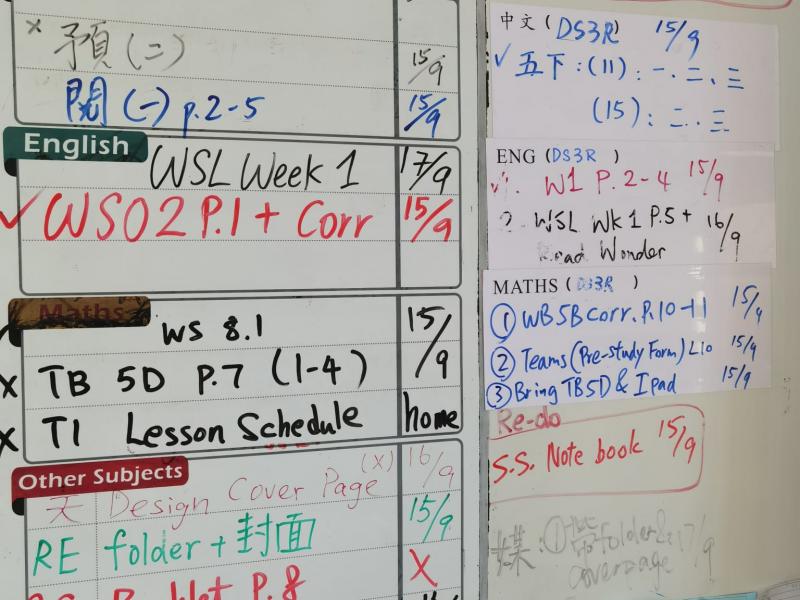 × 預(二) 15/9
閱(一) p.2-5 15/9
English
WSL Week 1 17/9
✓ WS02 P.1 + Corr 15/9
Maths
WS 8.1 15/9
× TB 5D P.7 (1-4)
× T1 Lesson Schedule home
Other Subjects
Design Cover Page (×) 16/9
RE folder + 封面 15/9
P.8 X
中文 (DS3R) 15/9
✓ 五下:(11):一、二、三
(15):二、三
ENG (DS3R)
1. W1 P.2-4 15/9
2. WSL Wk 1 P.5 + 16/9
Read Wonder
MATHS (DS3R)
① WB5B Corr. P.10-11 15/9
② Teams (Pre-study Form) L10 15/9
③ Bring TB5D & Ipad 15/9
Re-do
S.S. Note book 15/9
媒:① 帶folder & 17/9
coverpage